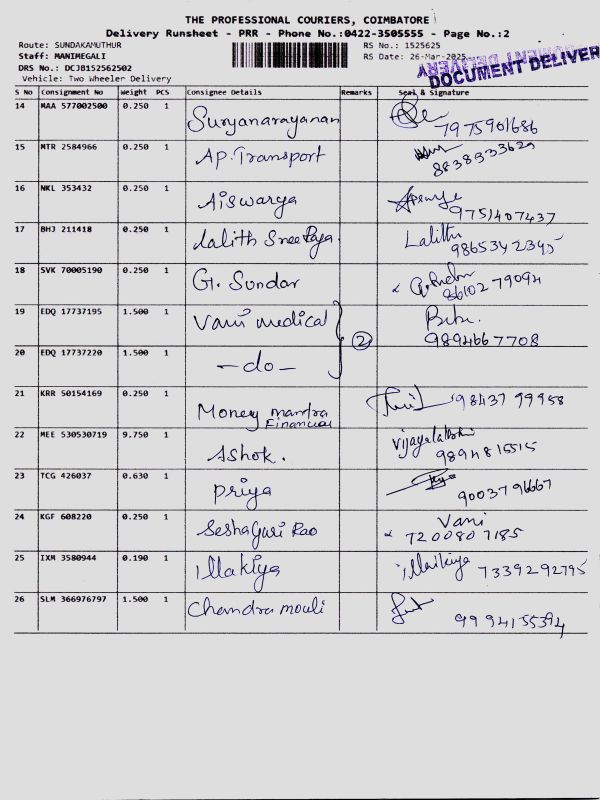 THE PROFESSIONAL COURIERS, COIMBATORE
Delivery Runsheet - PRR - Phone No.:0422-3505555 - Page No.:2
Route: SUNDAKAMUTHUR RS No.: 1525625
Staff: MANIMEGALI RS Date: 26-Mar-2025
DRS No.: DCJB152562502
Vehicle: Two Wheeler Delivery
DOCUMENT DELIVER
S No Consignment No Weight PCS Consignee Details Remarks Seal & Signature
14 MAA 577002500 0.250 1 Suryanarayanan 7975901686
15 MTR 2584966 0.250 1 AP. Transport
16 NKL 353432 0.250 1 Aiswarya 9751407437
17 BHJ 211418 0.250 1 Lalith Lalitha 9865342345
18 SVK 70005190 0.250 1 G. Sundar 8610279094
19 EDQ 17737195 1.500 1 Vani medical 2 9894667708
20 EDQ 17737220 1.500 1 -do-
21 KRR 50154169 0.250 1 Money mantra Financial 98437 99958
22 MEE 530530719 9.750 1 Ashok. Vijayalakshmi 9894815515
23 TCG 426037 0.630 1 Priya 9003796667
24 KGF 608220 0.250 1 Seshagiri Rao Vani 7200807185
25 IXM 3580944 0.190 1 illakiya 7339292795
26 SLM 366976797 1.500 1 Chandra mouli 9994155394